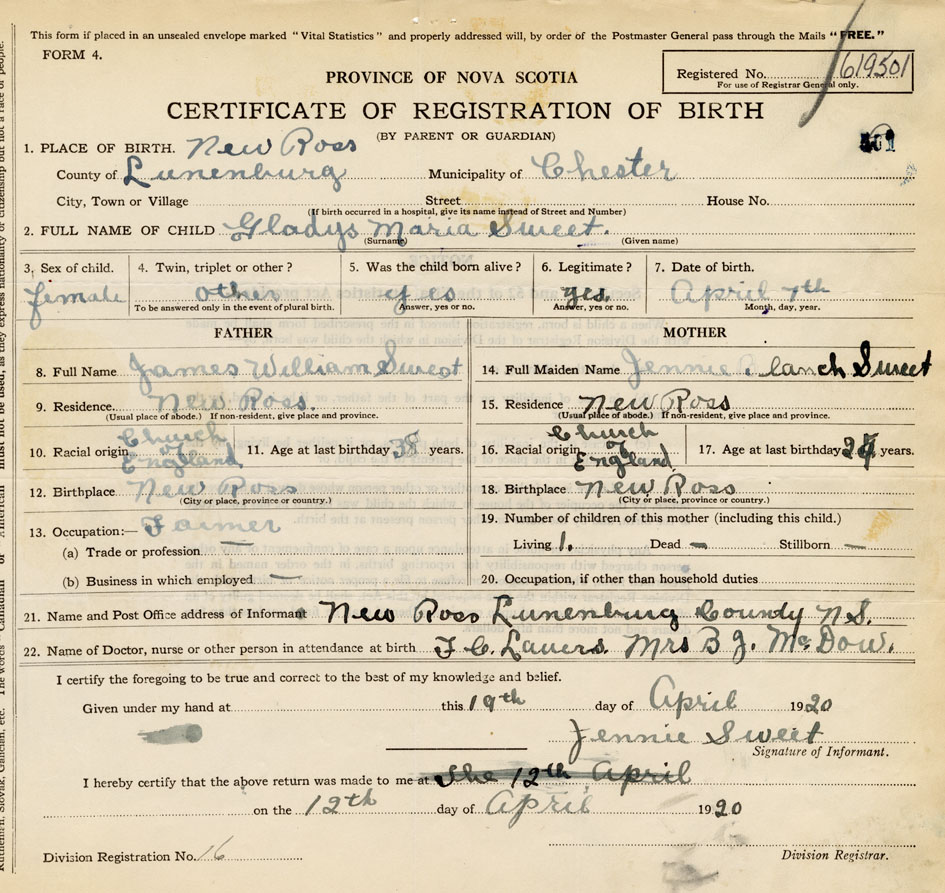 This form if placed in an unsealed envelope marked "Vital Statistics" and properly addressed will, by order of the Postmaster General pass through the Mails "FREE."
FORM 4.
Registered No. 619501
For use of Registrar General only.
PROVINCE OF NOVA SCOTIA
CERTIFICATE OF REGISTRATION OF BIRTH
(BY PARENT OR GUARDIAN)
1. PLACE OF BIRTH. New Ross
County of Lunenburg Municipality of Chester
City, Town or Village Street House No.
(If birth occurred in a hospital, give its name instead of Street and Number)
2. FULL NAME OF CHILD Gladys Maria Sweet.
(Surname) (Given name)
3. Sex of child. 4. Twin, triplet or other? 5. Was the child born alive? 6. Legitimate? 7. Date of birth.
female other yes yes. April 7th
To be answered only in the event of plural birth. Answer, yes or no. Answer, yes or no. Month, day, year.
FATHER MOTHER
8. Full Name James William Sweet 14. Full Maiden Name Jennie Blanch Sweet
9. Residence. New Ross. 15. Residence New Ross
(Usual place of abode.) If non-resident, give place and province. (Usual place of abode.) If non-resident, give place and province.
10. Racial origin Church of England 11. Age at last birthday years. 16. Racial origin Church of England 17. Age at last birthday years.
12. Birthplace New Ross 18. Birthplace New Ross
(City or place, province or country.) (City or place, province or country.)
13. Occupation:— Farmer 19. Number of children of this mother (including this child.)
(a) Trade or profession — Living 1. Dead — Stillborn —
(b) Business in which employed — 20. Occupation, if other than household duties
21. Name and Post Office address of Informant New Ross Lunenburg County N.S.
22. Name of Doctor, nurse or other person in attendance at birth F C. Lavers. Mrs B J. McDow.
I certify the foregoing to be true and correct to the best of my knowledge and belief.
Given under my hand at this 19th day of April 1920
Jennie Sweet
Signature of Informant.
I hereby certify that the above return was made to me at the 12th April
on the 12th day of April 1920
Division Registration No. 16 Division Registrar.